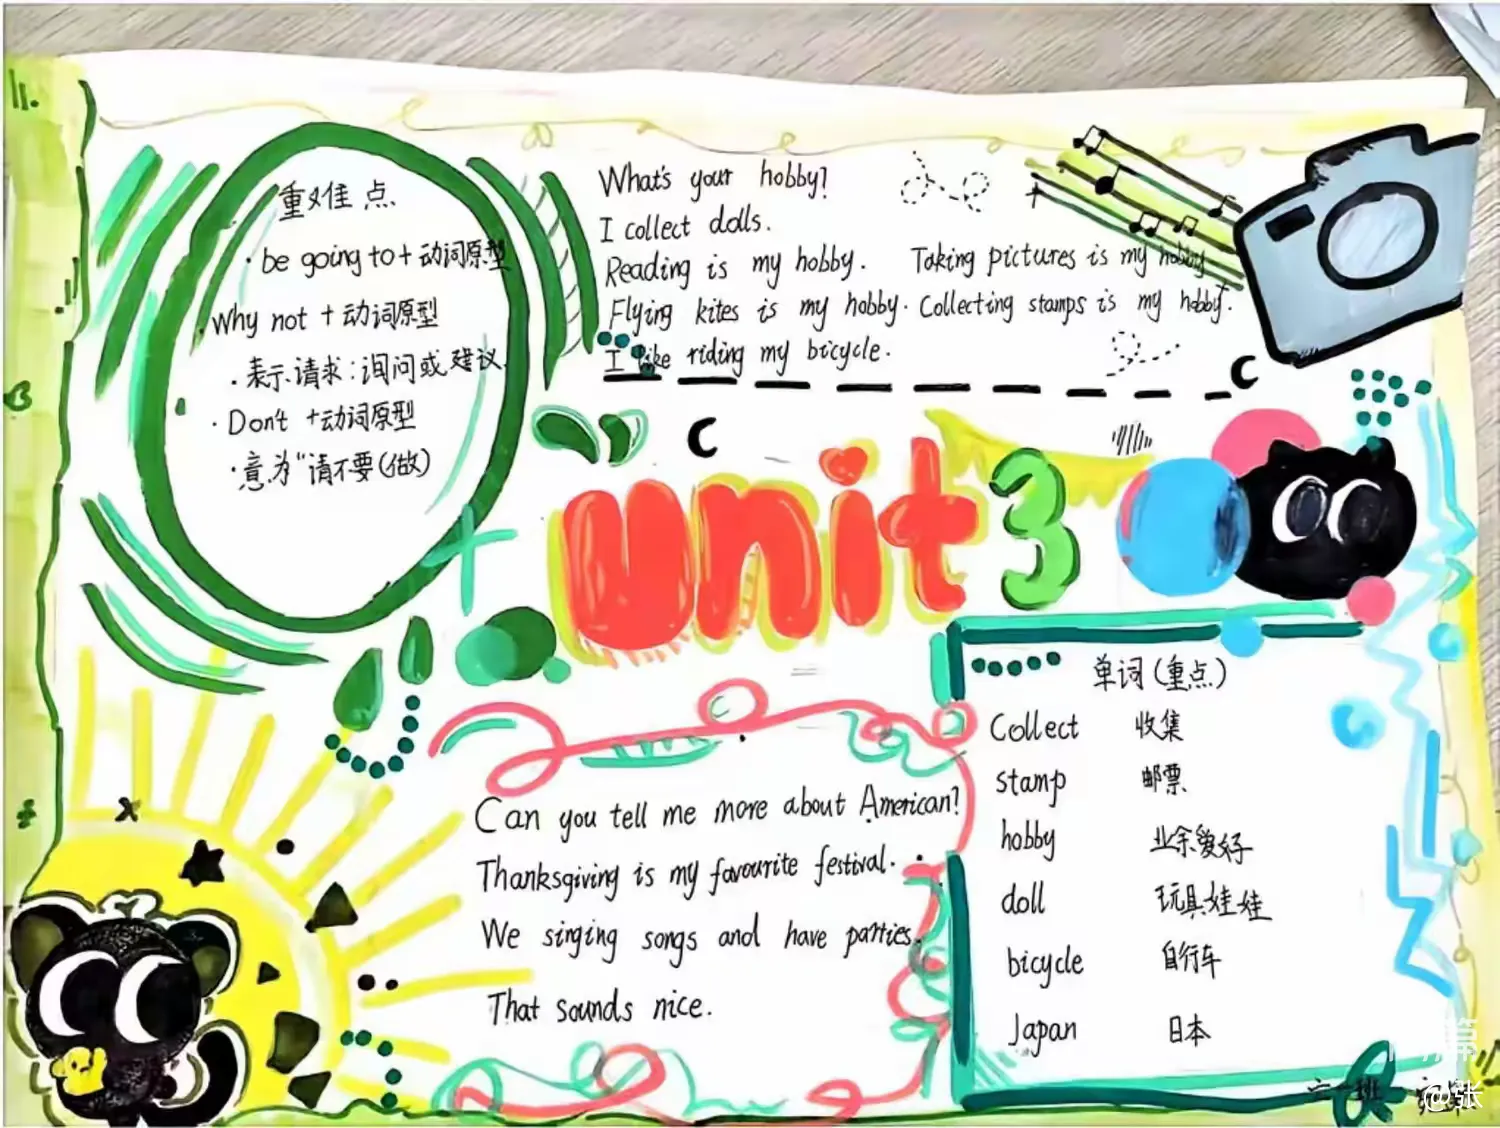 重难点
·be going to+动词原型
why not +动词原型
·表示请求:询问或建议.
·Don't +动词原型
·意为"请不要(做)
What's your hobby?
I collect dolls.
Reading is my hobby. Taking pictures is my hobby
Flying kites is my hobby. Collecting stamps is my hobby.
I like riding my bicycle.
unit 3
Can you tell me more about American?
Thanksgiving is my favourite festival.
We singing songs and have parties.
That sounds nice.
单词(重点)
Collect 收集
stamp 邮票
hobby 业余爱好
doll 玩具娃娃
bicycle 自行车
Japan 日本
@张